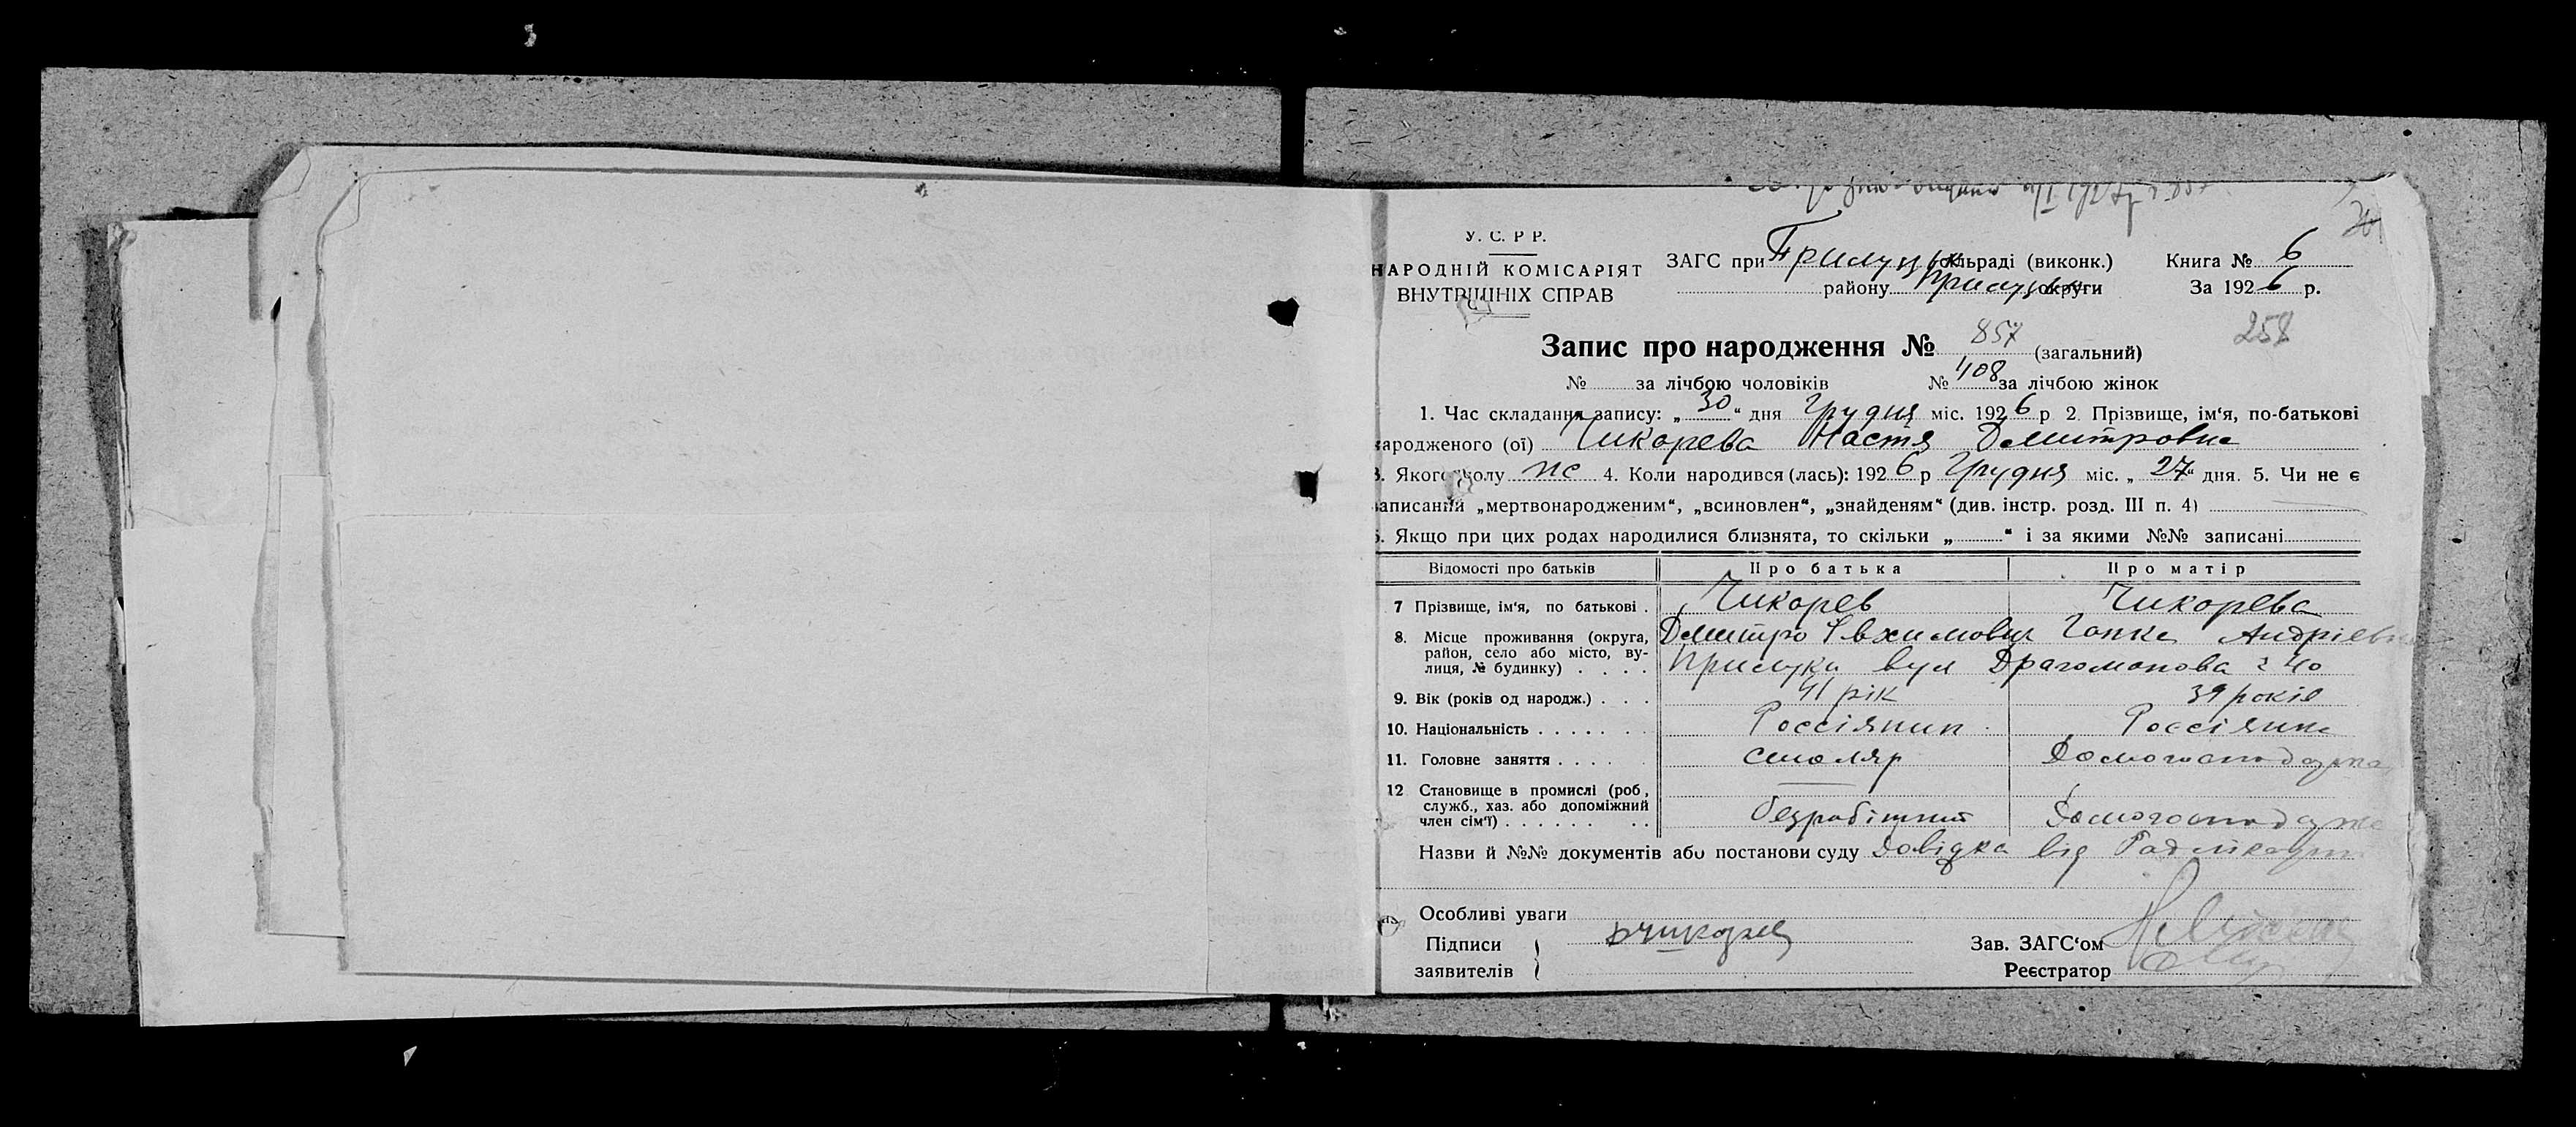 У. С. Р Р.
НАРОДНІЙ КОМІСАРІЯТ
ВНУТРІШНІХ СПРАВ
ЗАГС при Прилуцьк сільраді (виконк.)
району Прилуцьк округи
Книга № 6
За 1926 р.
258
Запис про народження № 857 (загальний)
№ за лічбою чоловіків № 408 за лічбою жінок
1. Час складання запису: „30“ дня Грудня міс. 1926 р 2. Прізвище, ім‘я, по-батькові
народженого (ої) Чикорева Настя Дмитровна
3. Якого полу жс 4. Коли народився (лась): 1926 р Грудня міс. „27“ дня. 5. Чи не є
записаний „мертвонародженим“, „всиновлен“, „знайденям“ (див. інстр. розд. III п. 4)
6. Якщо при цих родах народилися близнята, то скільки „ “ і за якими №№ записані
Відомості про батьків Про батька Про матір
7 Прізвище, ім‘я, по батькові . Чикорев Чикорева
Дмитро Євхимович Гапка Андріевна
8. Місце проживання (округа,
район, село або місто, ву-
лиця, № будинку) . . . . Прилуки вул Драгоманова 40
9. Вік (років од народж.) . . . 41 рік 39 років
10. Національність . . . . . . . Россіянин Россіянка
11. Головне заняття . . . . столяр Домогосподарка
12 Становище в промислі (роб,
служб., хаз. або допоміжний
член сім‘ї) . . . . . . . . безробітний Домогосподарка
Назви й №№ документів або постанови суду Довідка від
Особливі уваги
Підписи Дчикорев Зав. ЗАГС‘ом
заявителів Реєстратор